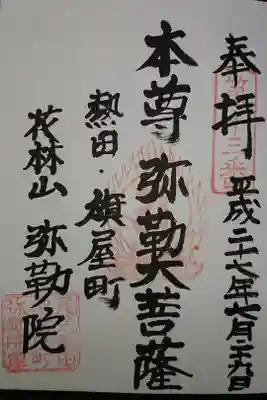 奉拝
平成二十七年七月二十九日
本尊 弥勒大菩薩
熱田・旗屋町
花林山 弥勒院